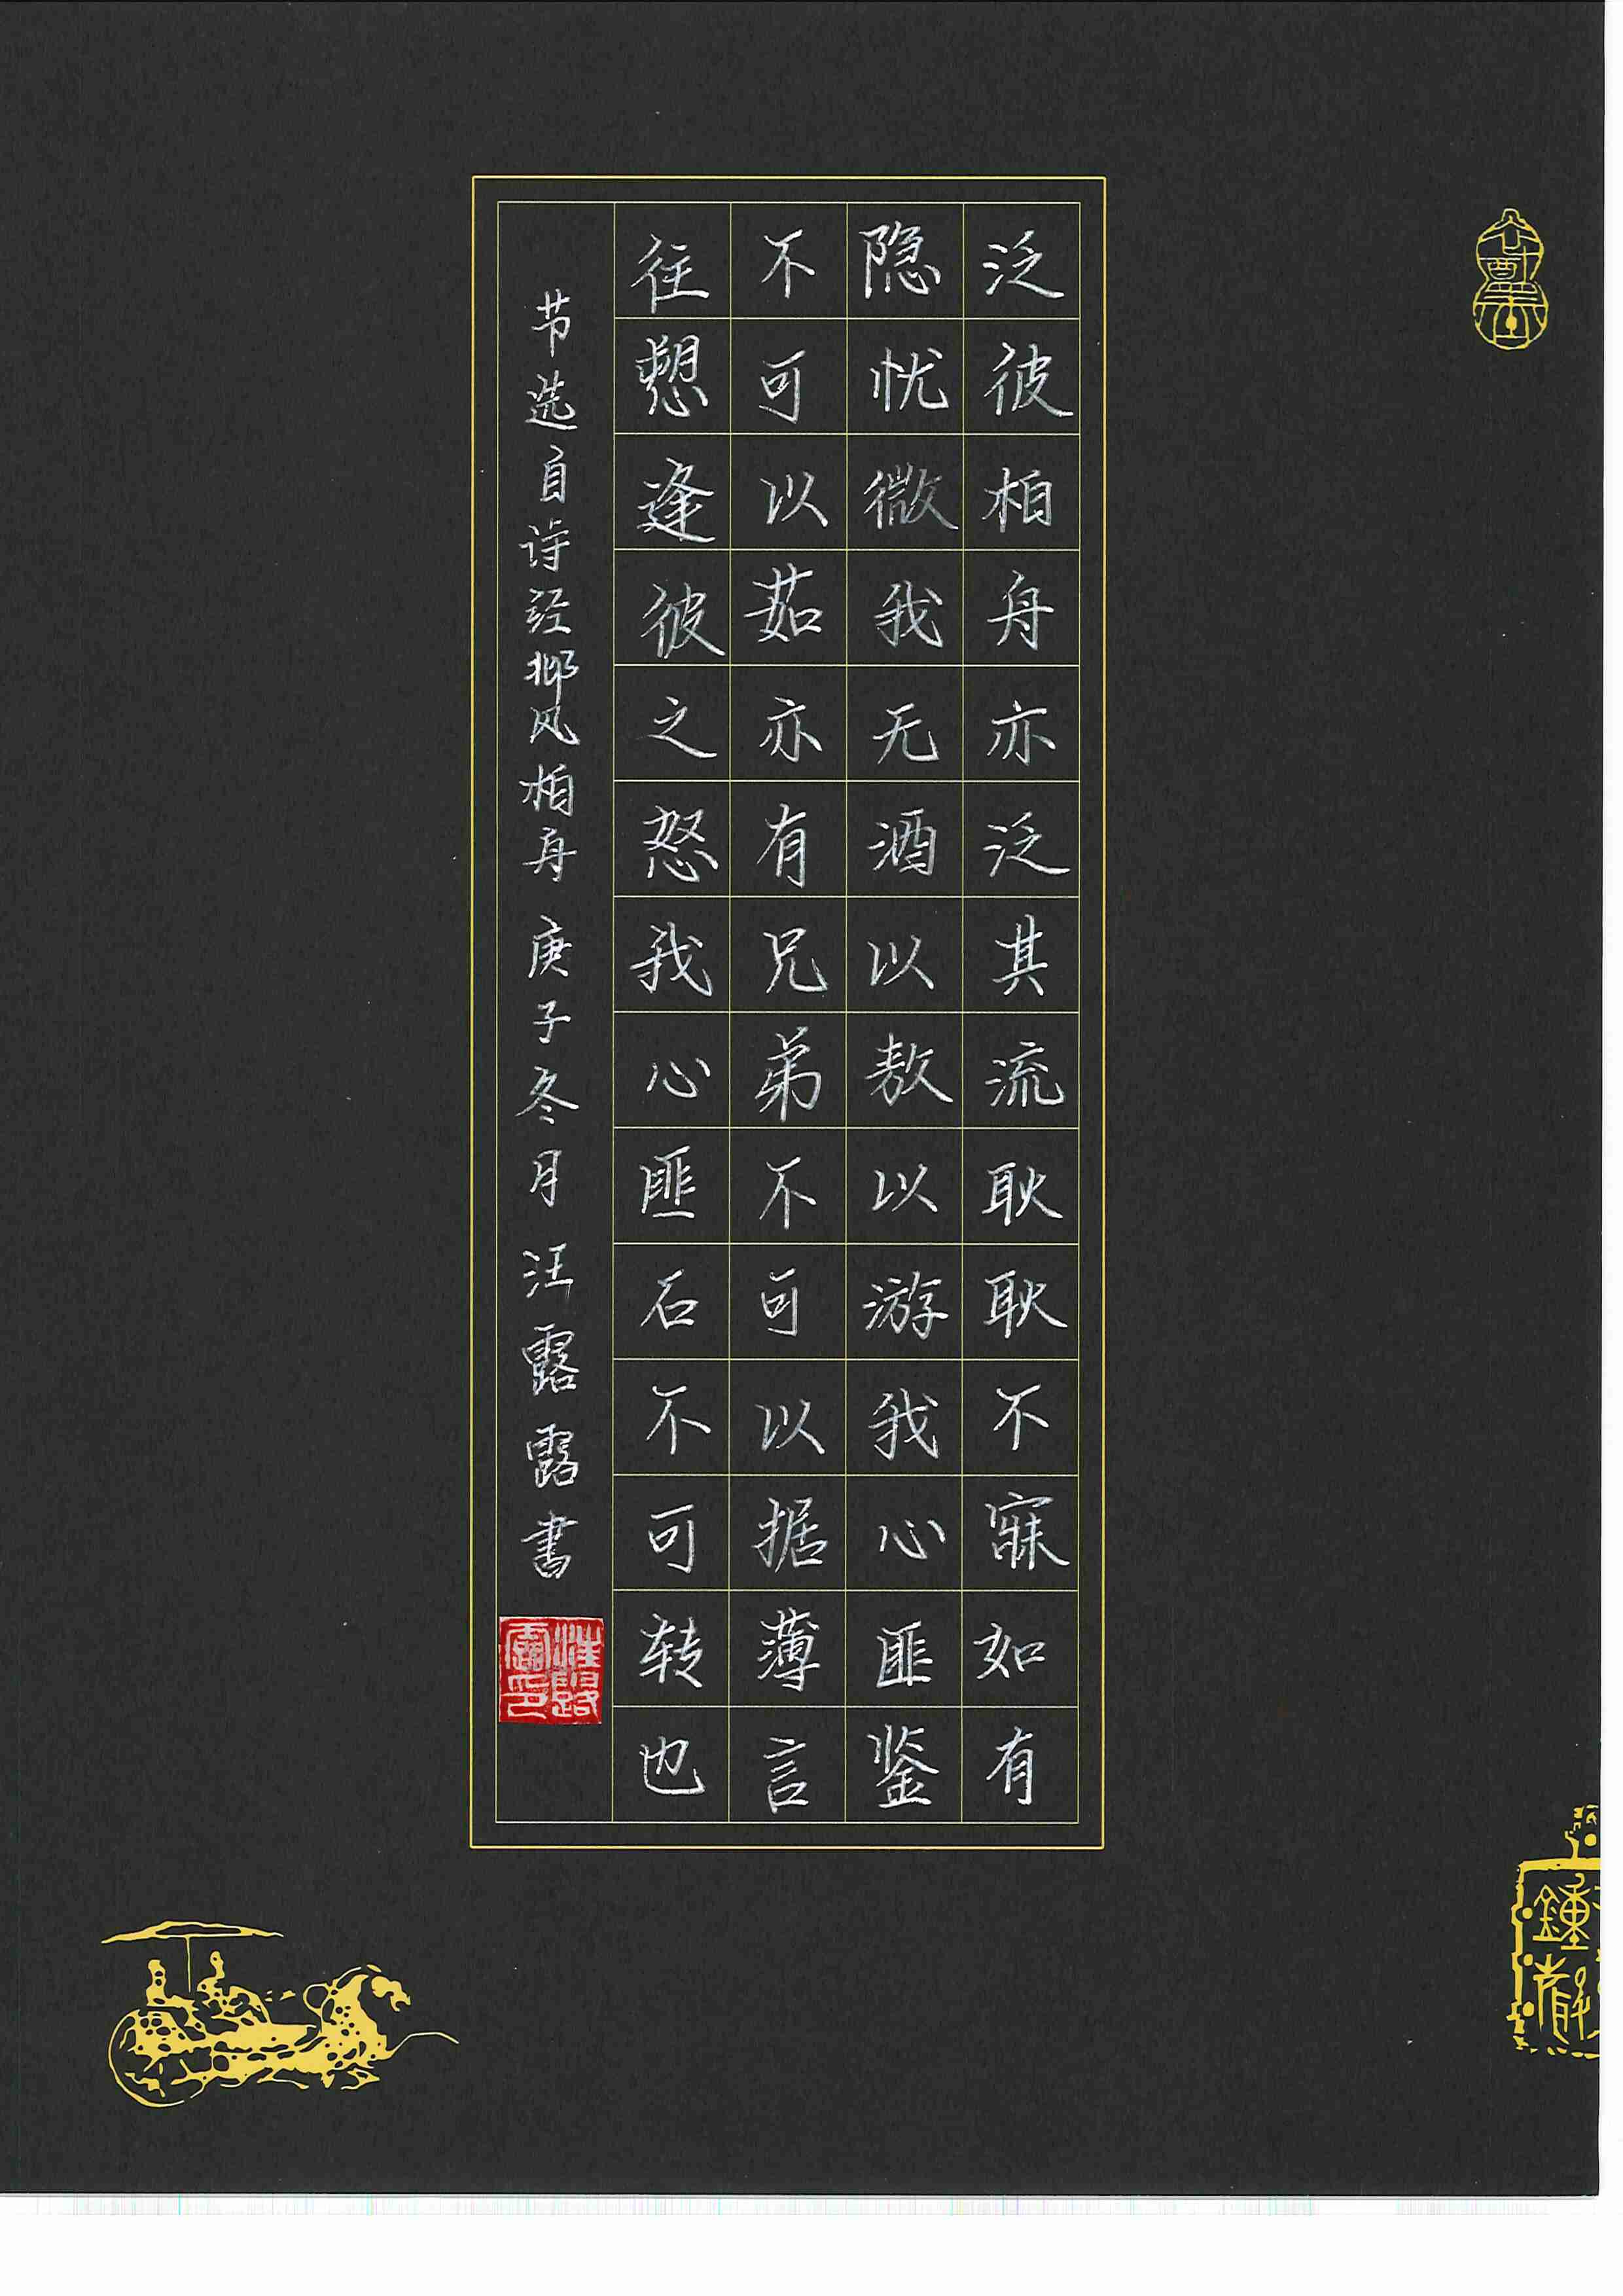 泛彼柏舟亦泛其流耿耿不寐如有
隐忧微我无酒以敖以游我心匪鉴
不可以茹亦有兄弟不可以据薄言
往愬逢彼之怒我心匪石不可转也
节选自诗经邶风柏舟 庚子冬月 汪露露书